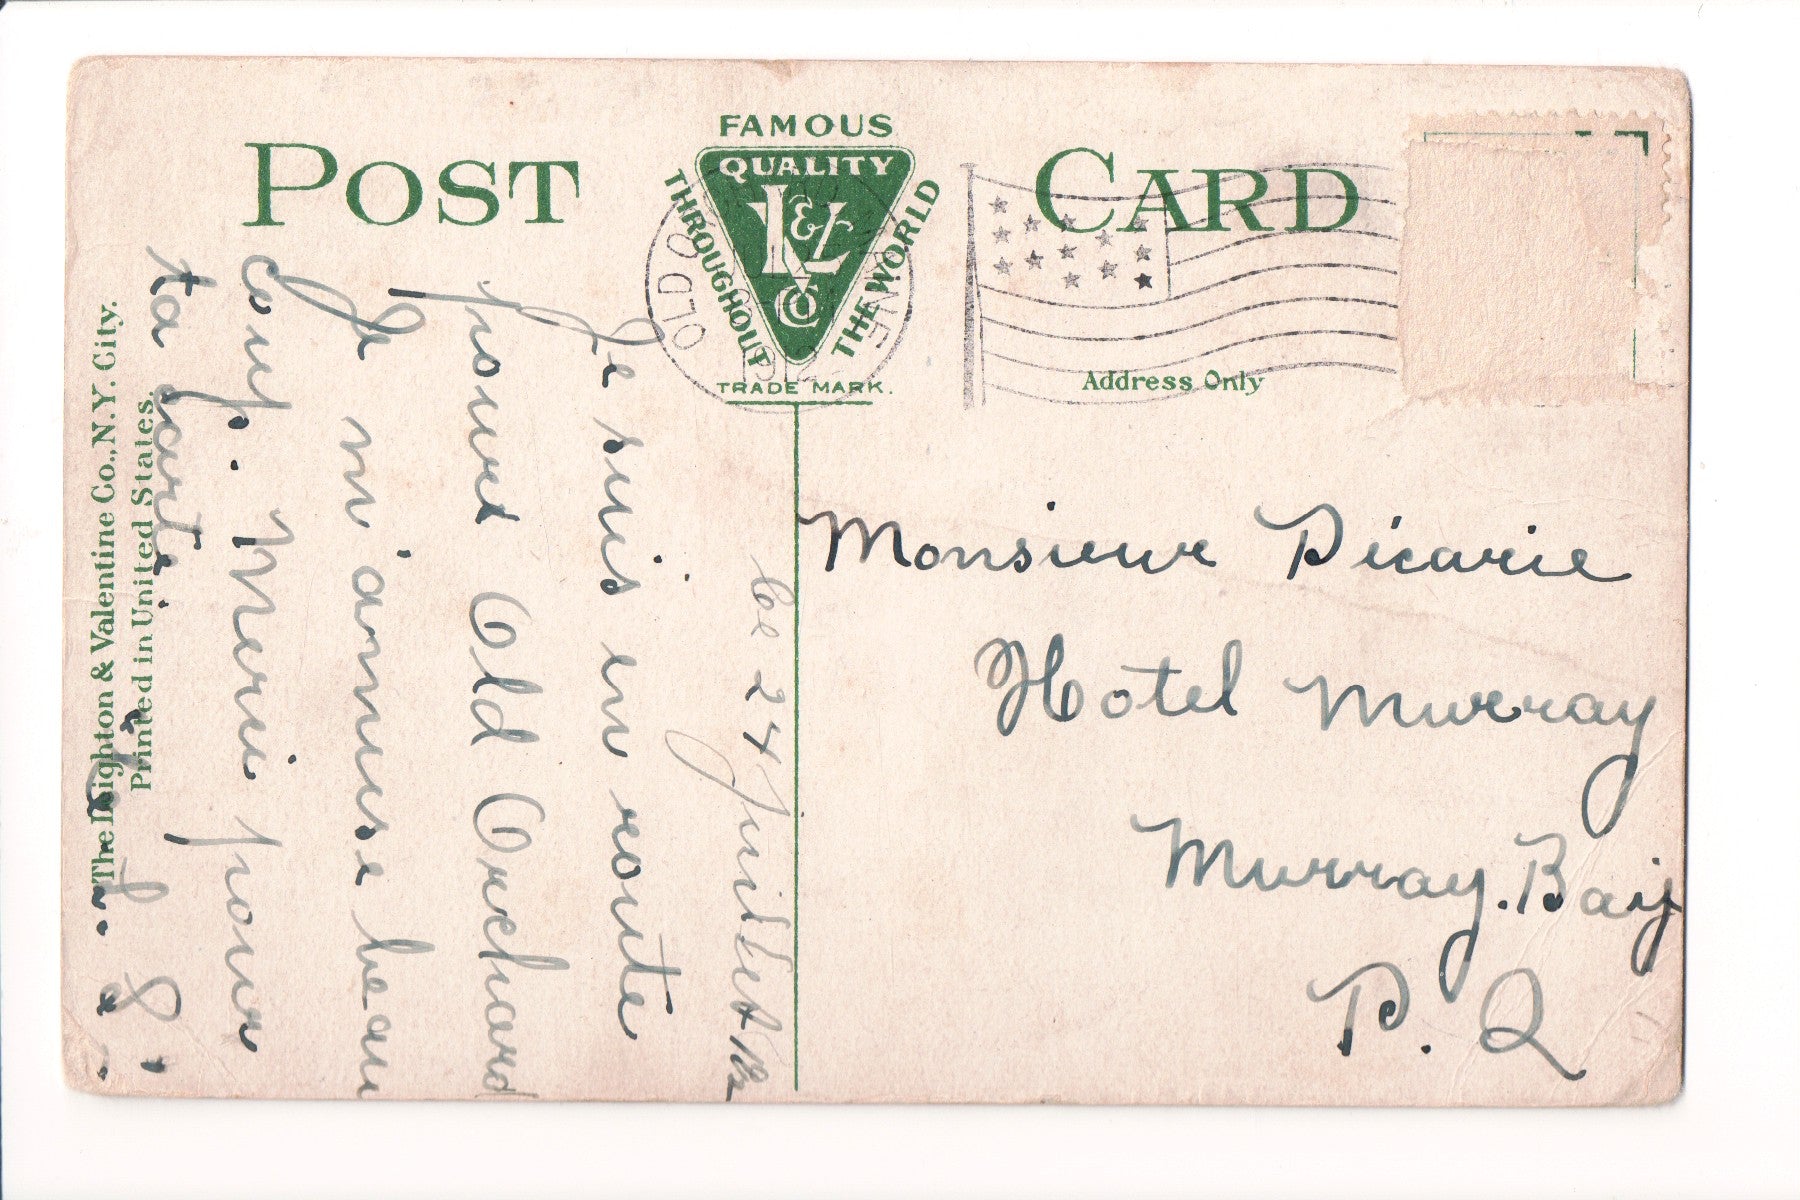 FAMOUS
QUALITY
L & V Co
THROUGHOUT THE WORLD
TRADE MARK.
POST CARD
Address Only
OLD O
INE
The Leighton & Valentine Co., N.Y. City.
Printed in United States.
Le 24 Juillet 1912
Je suis en route
pour Old Orchard
Je m'amuse beau
coup. Merci pour
ta carte.
Monsieur Picarie
Hotel Murray
Murray. Bay
P. Q